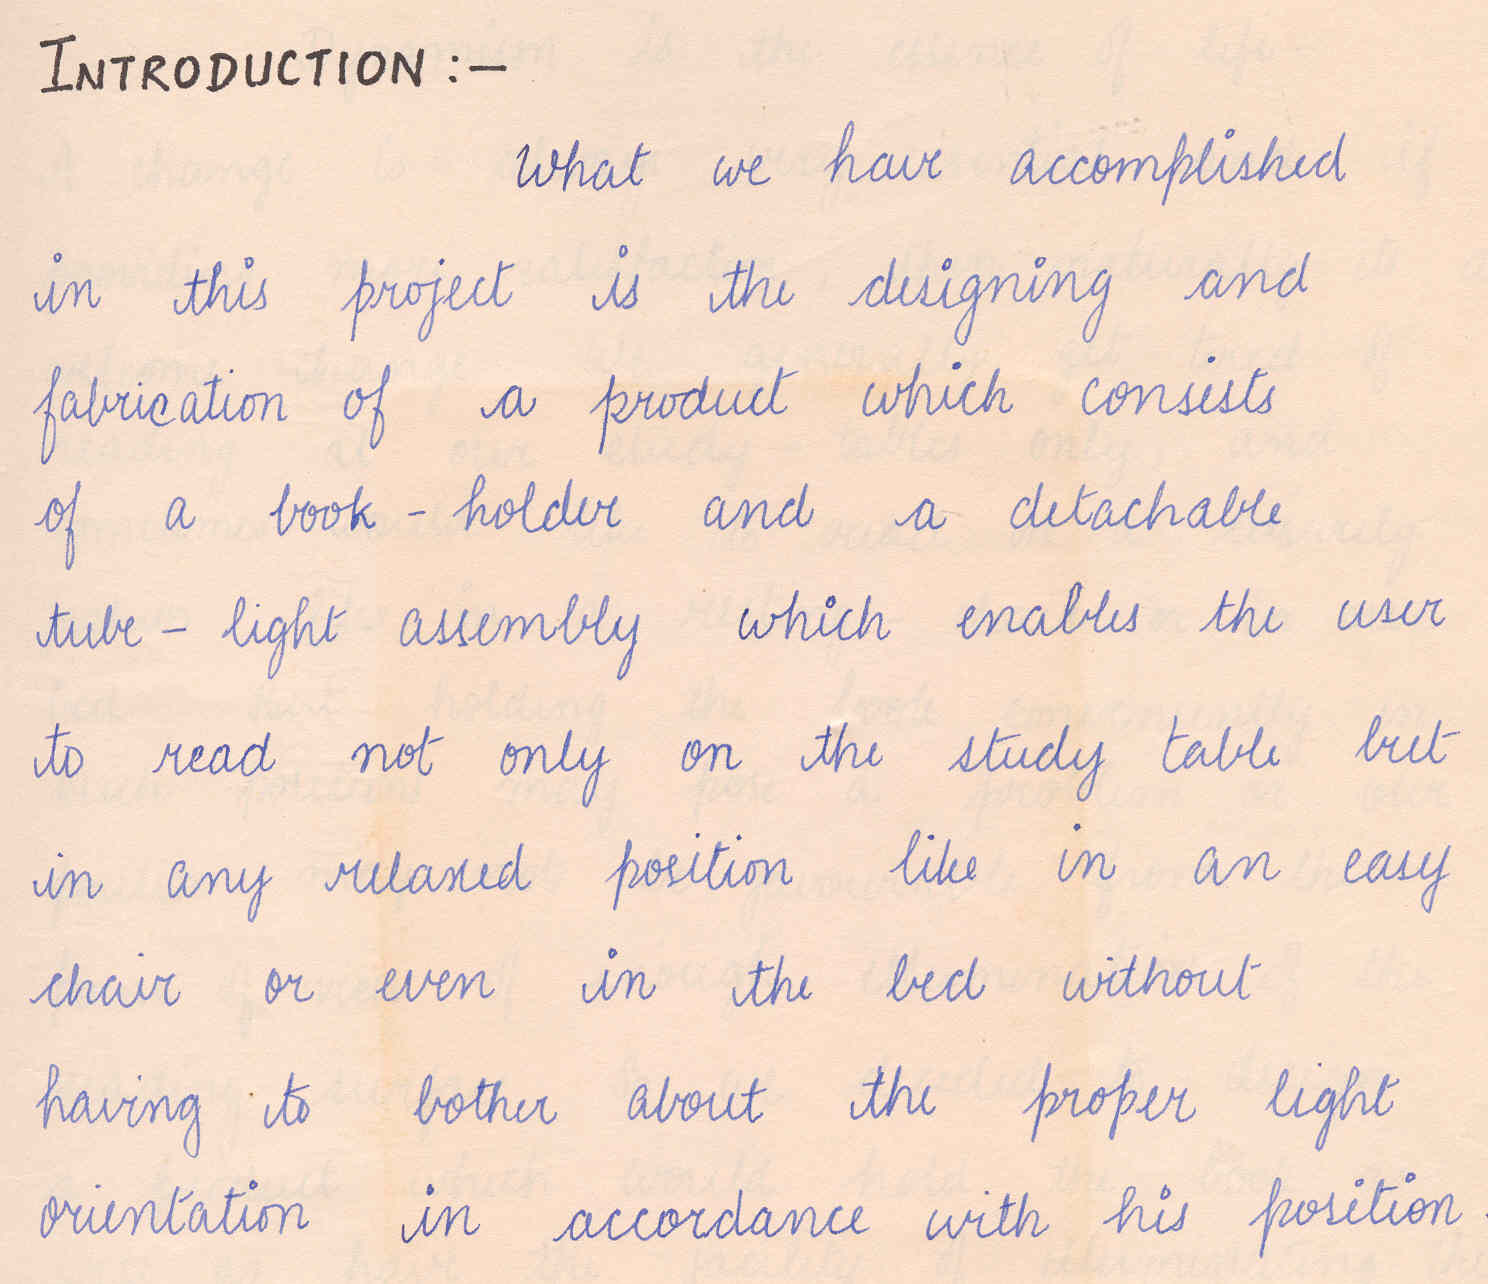 INTRODUCTION :-
What we have accomplished
in this project is the designing and
fabrication of a product which consists
of a book - holder and a detachable
tube - light assembly which enables the user
to read not only on the study table but
in any relaxed position like in an easy
chair or even in the bed without
having to bother about the proper light
orientation in accordance with his position.